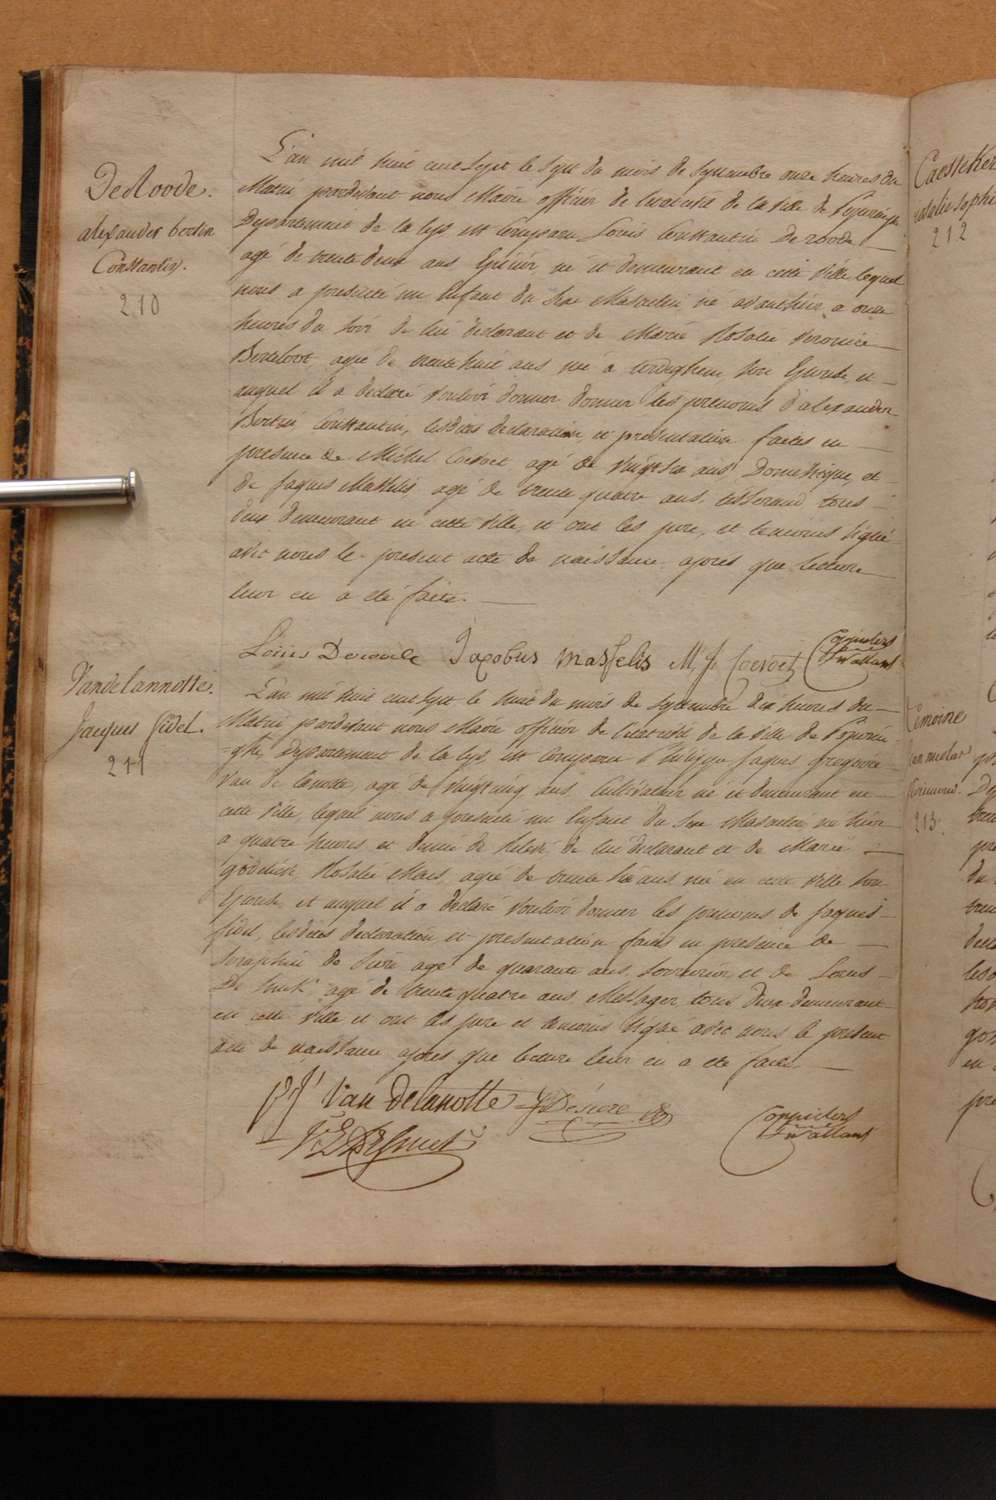 DeRoode.
alexander bertin
Constantin.
210
L'an mil huit cent sept le sept du mois de septembre onze heures du
Matin pardevant nous Maire officier de l'etat civil de la ville de Poperinghe
Departement de la Lys est comparu Louis Constantin De roode
agé de trente deux ans Epicier né et demeurant en cette ville lequel
nous a presenté un Enfant du sexe Masculin né avanthier a onze
heures du soir de lui declarant et de Marie Rosalie Veronica
agée de trente huit ans née a son Epouse et
auquel il a declaré vouloir donner donner les prenoms d'alexander
Bertin Constantin, lesdites declaration et presentation faites en
presence de Michel Coevoet agé de vingt six ans Domestique et
de Jaques agé de trente quatre ans tisserand tous
deux demeurant en cette ville et ont les pere, et temoins signé
avec nous le present acte de naissance apres que Lecture
leur en a été faite.
Louis Deroode Jacobus Masselis M. J. Coevoet
Vandelannotte.
Jacques fidel.
211
L'an mil huit cent sept le huit du mois de septembre dix heures du
Matin pardevant nous Maire officier de l'etat civil de la ville de Poperin-
ghe Departement de la Lys, est comparu Philippe Jaques Gregoire
Van de lanotte, agé de vingt cinq ans Cultivateur né et demeurant en
cette ville, lequel nous a presenté un Enfant du sexe Masculin né hier
a quatre heures et demie de de lui declarant et de Marie
Godelive Rosalie Maes, agée de trente six ans née en cette ville son
Epouse et auquel il a declaré vouloir donner les prenoms de Jaques
fidel, lesdites declaration et presentation faites en presence de
Seraphin de Sure agé de quarante ans, et de Louis
De Smet agé de trente quatre ans Messager tous deux demeurant
en cette ville et ont les pere et temoins signé avec nous le present
acte de naissance apres que lecture leur en a été faite.
P J Van Delanotte
Caesteker
sophie
212
Lemoine
213